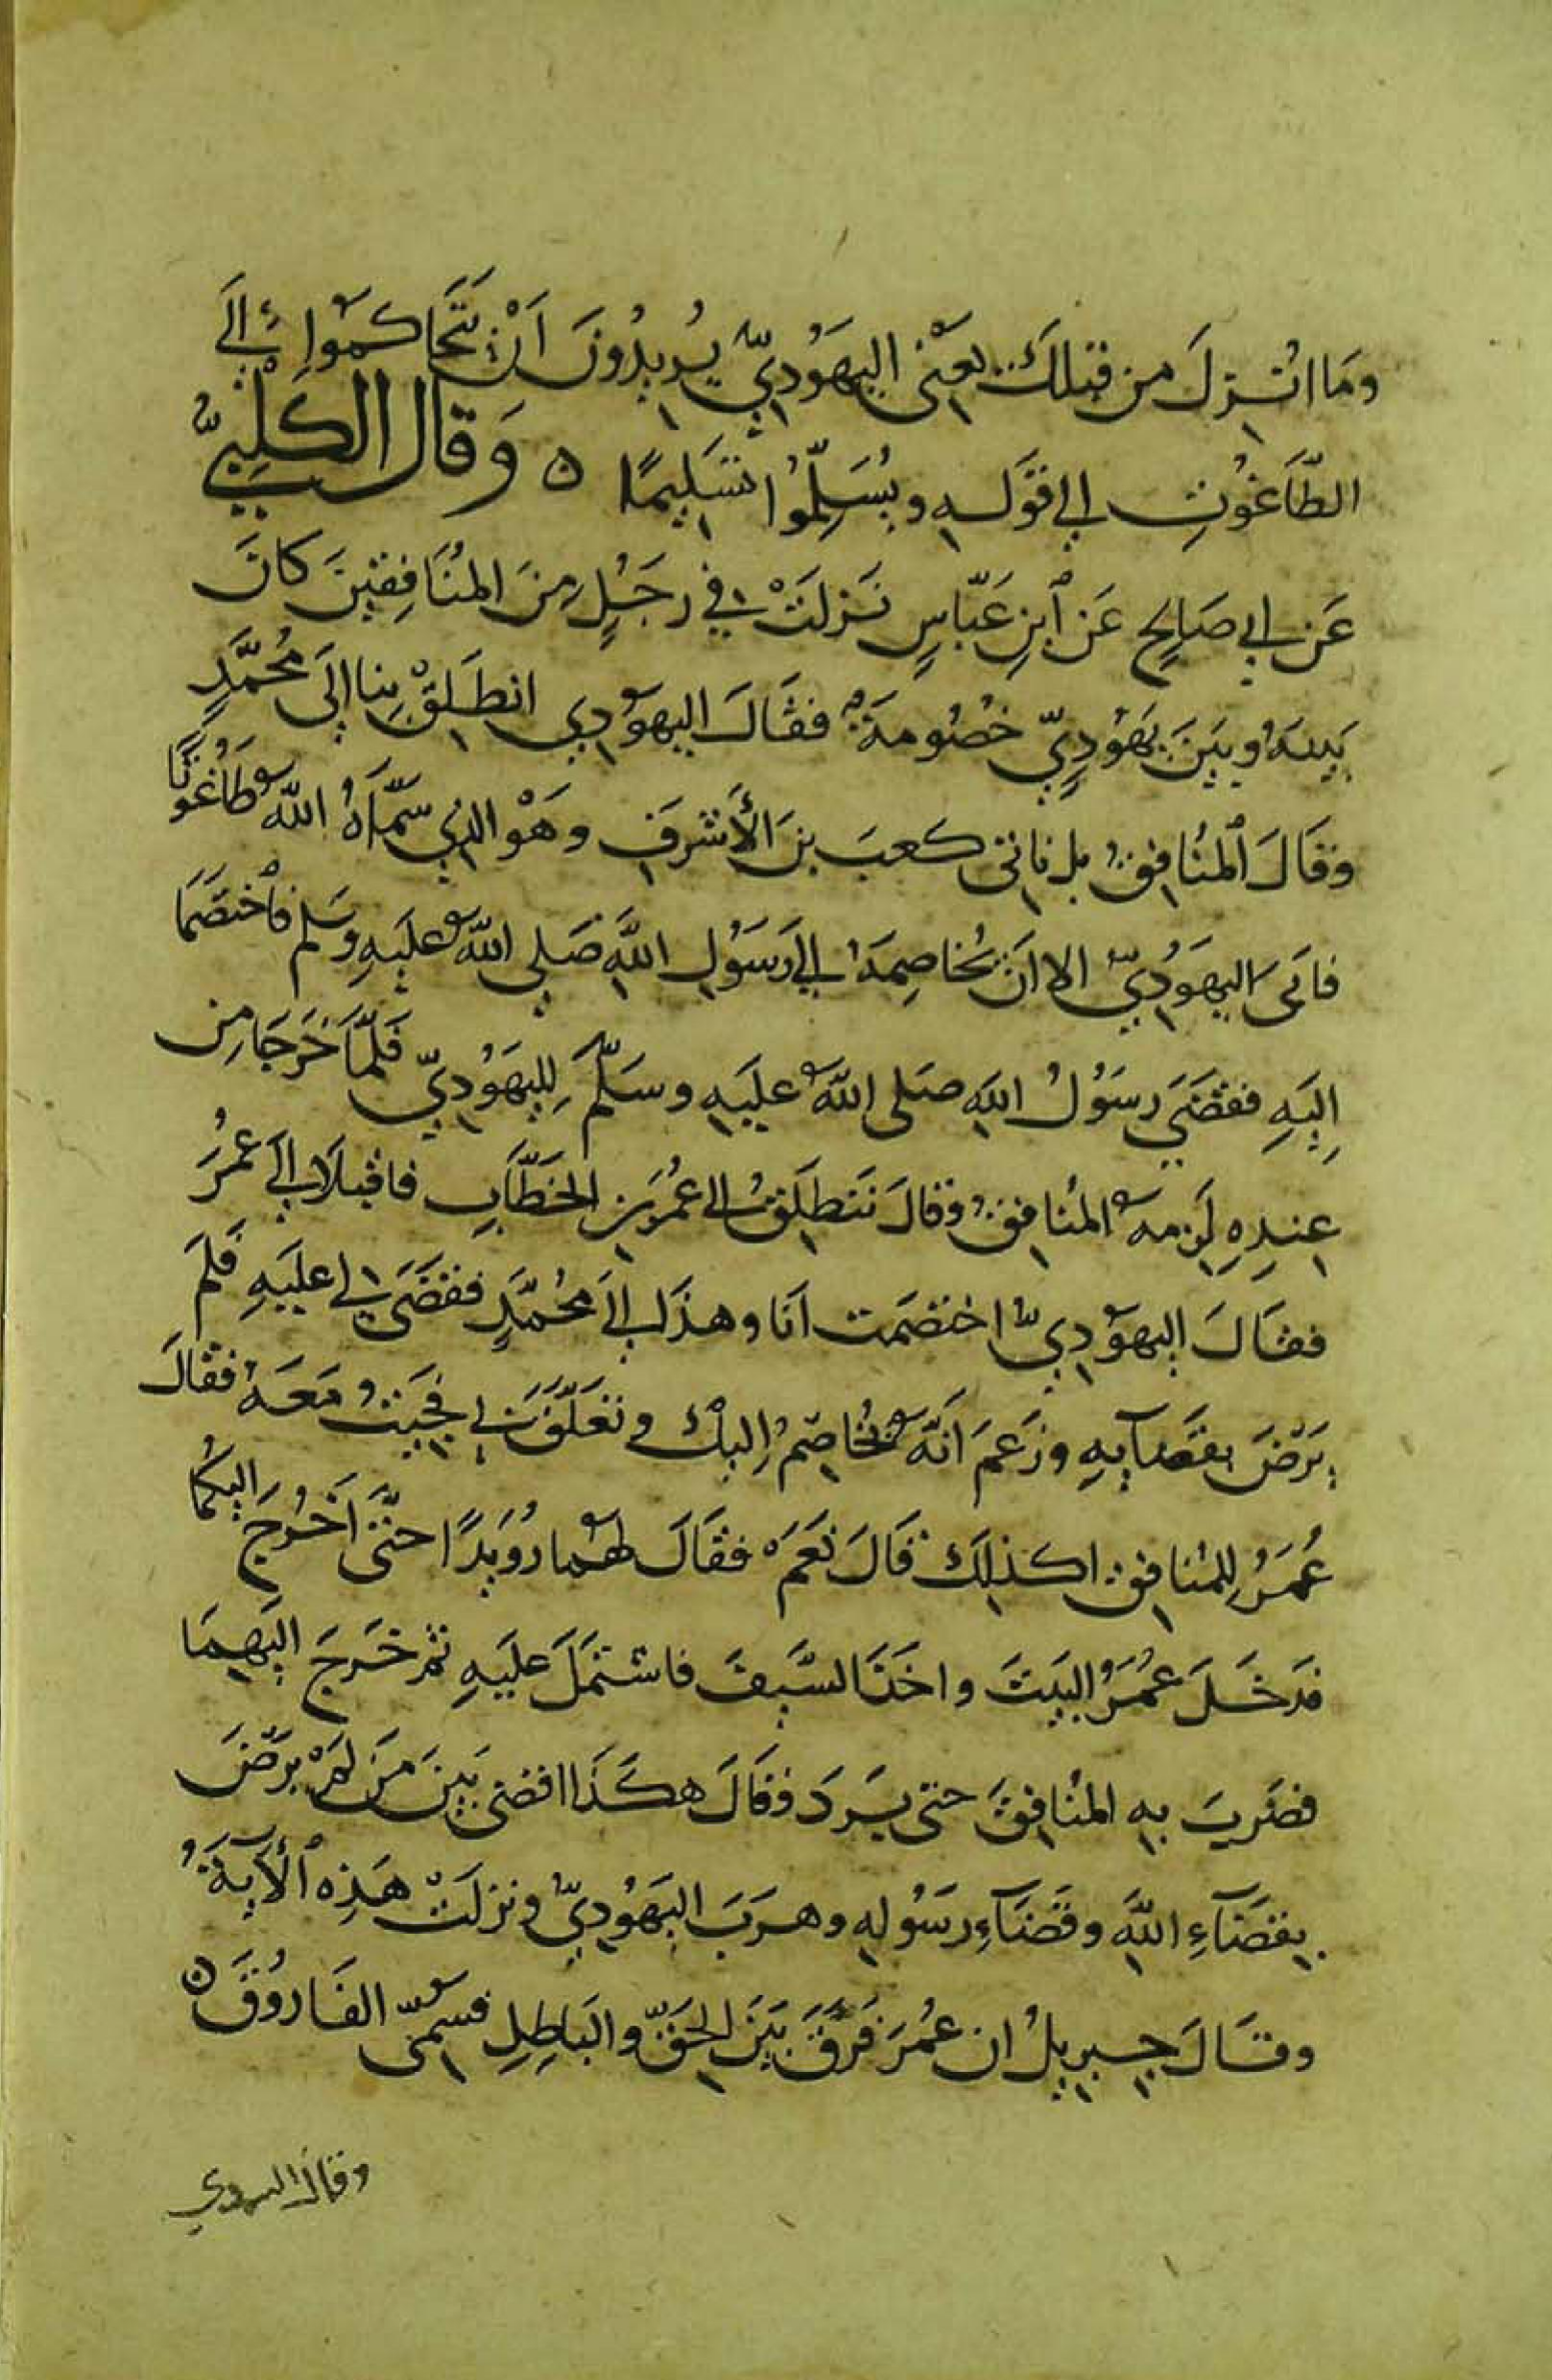 وَمَا انُزِلَ من قبلكَ يعَنْى اليهَوُديّ يُريدُونَ اَنْ يَتَحَاكموُا إلَى
الطّاَغُوْتِ الي قَولهِ ويُسَلِّمُوُا تسَليمًا ه وَقال الكَلْبيُّ
عَن ابي صَالحٍ عَن ٱبنِ عَبّاسٍ نَزلَتْ في رَجُلٍ مِنَ المنُاَفِقينَ كانَ
بَينهُ وبَينَ يَهَوُديٍّ خصُومةٌ فقَالَ اليهوُدي انطَلِقْ بِنا إلَى مُحمَّدٍ
وقَالَ ٱلمنُافِقُ بل ناتى كعبَ بنَ الأَشرفِ وهَوْ الذي سَمّاَهُ اللّهُ طَاغُوتًا
فابَى اليهوَُديّ الا اَن يُخاصِمهُ الي رَسُولِ اللَّهِ صَلى اللّهُ علَيهِ وسَلم فٱختصَمَا
إليَهِ فقضَي رسَوُلُ اللهِ صَلى اللّهُ عليَهِ وسَلَّمَ لِليهَوُديّ فَلمّاَ خَرَجَا مِن
عِندِهِ لَزِمهُ المنُافقُ وقالَ نَنطلِقُ الى عُمَر بنِ الخطَّابِ فاقبلاَ الَى عُمرَُ
فقَالَ اليهوُديّ اختصَمت انَا وهذَا الَى مُحُمَّدٍ فقضَى لي عليَهِ فلَم
يَرْضَ بقَضآيهِ وزَعمَ انَّهُ يُخَاصِمُ إليكْ وتَعَلّقَ بي فجيتُ معَهُ فقالَ
عُمَرُ للمنُافقِ اكذلِكَ قَالَ نَعَمْ فقَالَ لهُما رُوَيدًا حتَّى اَخُرجَ اليكُمَا
فدَخَلَ عُمَرُ البَيتَ واخَذَ السَّيفَ فاشتمَلَ علَيهِ ثم خَرجَ اليَهِمَا
فضَربَ بهِ المنُافِقَ حتى بَردَ وقَالَ هكَذَا اقضى بَينَ مَن لمَْ يَرضَ
بِقضَآءِ اللّهَِ وقَضَآءِ رسَوُلهِ وهرَبَ اليهَوُديّ ونزلَتْ هَذِهِ ٱلآيَةُ
وقَالَ جبريلُ ان عُمَرَ فَرّقَ بَينَ الحقَّ والبَاطِلِ فسُمّىَ الفَاروُقَ ه
وقال السدي